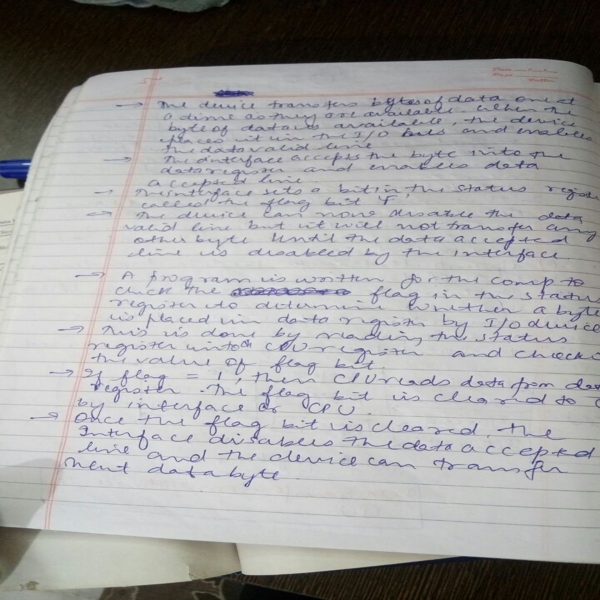 → The device transfers bytes of data one at
a time as they are available. When the
byte of data is available, the device
places it in the I/O bus and enables
the data valid line
→ The interface accepts the byte into the
data register and enables data
accepted line
→ The interface sets a bit in the status regis
called the flag bit F.
→ The device can now disable the data
valid line but it will not transfer any
other byte until the data accepted
line is disabled by the interface
→ A program is written for the comp to
check the flag in the status
register to determine whether a byte
is placed in data register by I/O device
→ This is done by reading the status
register into CPU register and checki
the value of flag bit.
→ If flag = 1, then CPU reads data from da
register. The flag bit is cleared to 0
by interface or CPU.
→ Once the flag bit is cleared, the
Interface disables the data accepted
line and the device can transfer
next data byte.